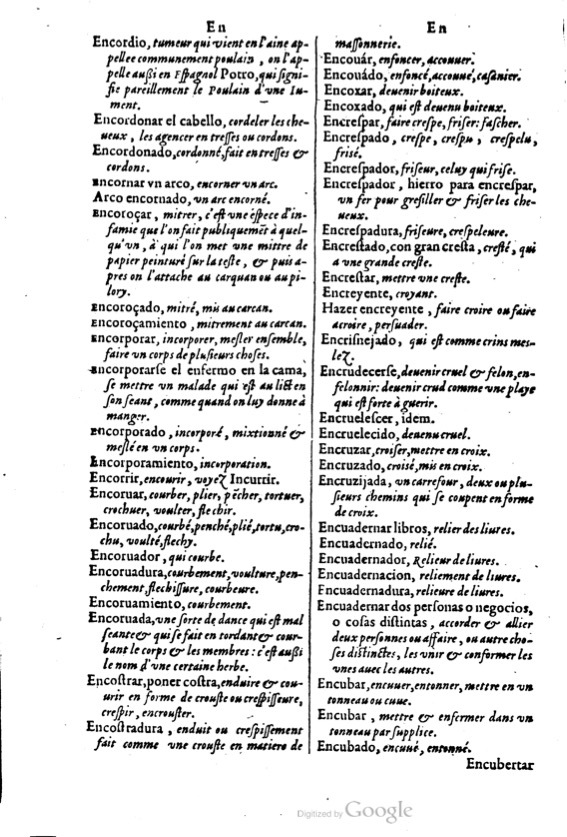 En
Encordio, tumeur qui vient en l'aine ap-
pellee communement poulain, on l'ap-
pelle außi en Espagnol Potro, qui signi-
fie pareillement le Poulain d'vne Iu-
ment.
Encordonar el cabello, cordeler les che-
ueux, les agencer en tresses ou cordons.
Encordonado, cordonné, fait en tresses &
cordons.
Encornar vn arco, encorner vn arc.
Arco encornado, vn arc encorné.
Encoroçar, mitrer, c'est vne espece d'in-
famie que l'on fait publiquemēt à quel-
qu'vn, à qui l'on met vne mittre de
papier peinturé sur la teste, & puis a-
pres on l'attache au carquan ou au pi-
lory.
Encoroçado, mitré, mis au carcan.
Encoroçamiento, mitrement au carcan.
Encorporar, incorporer, mesler ensemble,
faire vn corps de plusieurs choses.
Encorporarse el enfermo en la cama,
se mettre vn malade qui est au lict en
son seant, comme quand on luy donne à
manger.
Encorporado, incorporé, mixtionné &
meslé en vn corps.
Encorporamiento, incorporation.
Encorrir, encourir, voyez Incurrir.
Encoruar, courber, plier, pēcher, tortuer,
crochuer, voulter, flechir.
Encoruado, courbé, penché, plié, tortu, cro-
chu, voulté, flechy.
Encoruador, qui courbe.
Encoruadura, courbement, voulture, pen-
chement, flechissure, courbeure.
Encoruamiento, courbement.
Encoruada, vne sorte de dance qui est mal
seante & qui se fait en tordant & cour-
bant le corps & les membres : c'est außi
le nom d'vne certaine herbe.
Encostrar, poner costra, enduire & cou-
urir en forme de crouste ou crespissure,
crespir, encrouster.
Encostradura, enduit ou crespissement
fait comme vne crouste en matiere de
En
massonnerie.
Encouár, enfoncer, accouuer.
Encouádo, enfoncé, accoué, casanier.
Encoxar, deuenir boiteux.
Encoxado, qui est deuenu boiteux.
Encrespar, faire crespe, friser: fascher.
Encrespado, crespe, crespu, crespelu,
frisé.
Encrespador, friseur, celuy qui frise.
Encrespador, hierro para encrespar,
vn fer pour gresiller & friser les che-
ueux.
Encrespadura, friseure, crespeleure.
Encrestado, con gran cresta, cresté, qui
a vne grande creste.
Encrestar, mettre vne creste.
Encreyente, croyant.
Hazer encreyente, faire croire ou faire
acroire, persuader.
Encrisnejado, qui est comme crins mes-
lez.
Encrudecerse, deuenir cruel & felon, en-
felonnir: deuenir crud comme vne playe
qui est forte à guerir.
Encruelescer, idem.
Encruelecido, deuenu cruel.
Encruzar, croiser, mettre en croix.
Encruzado, croisé, mis en croix.
Encruzijada, vn carrefour, deux ou plu-
sieurs chemins qui se coupent en forme
de croix.
Encuadernar libros, relier des liures.
Encuadernado, relié.
Encuadernador, Relieur de liures.
Encuadernacion, reliement de liures.
Encuadernadura, relieure de liures.
Encuadernar dos personas o negocios,
o cosas distintas, accorder & allier
deux personnes ou affaire, ou autre cho-
ses distinctes, les vnir & conformer les
vnes auec les autres.
Encubar, encuuer, entonner, mettre en vn
tonneau ou cuue.
Encubar, mettre & enfermer dans vn
tonneau par supplice.
Encubado, encuué, entonné.
Encubertar
Digitized by Google